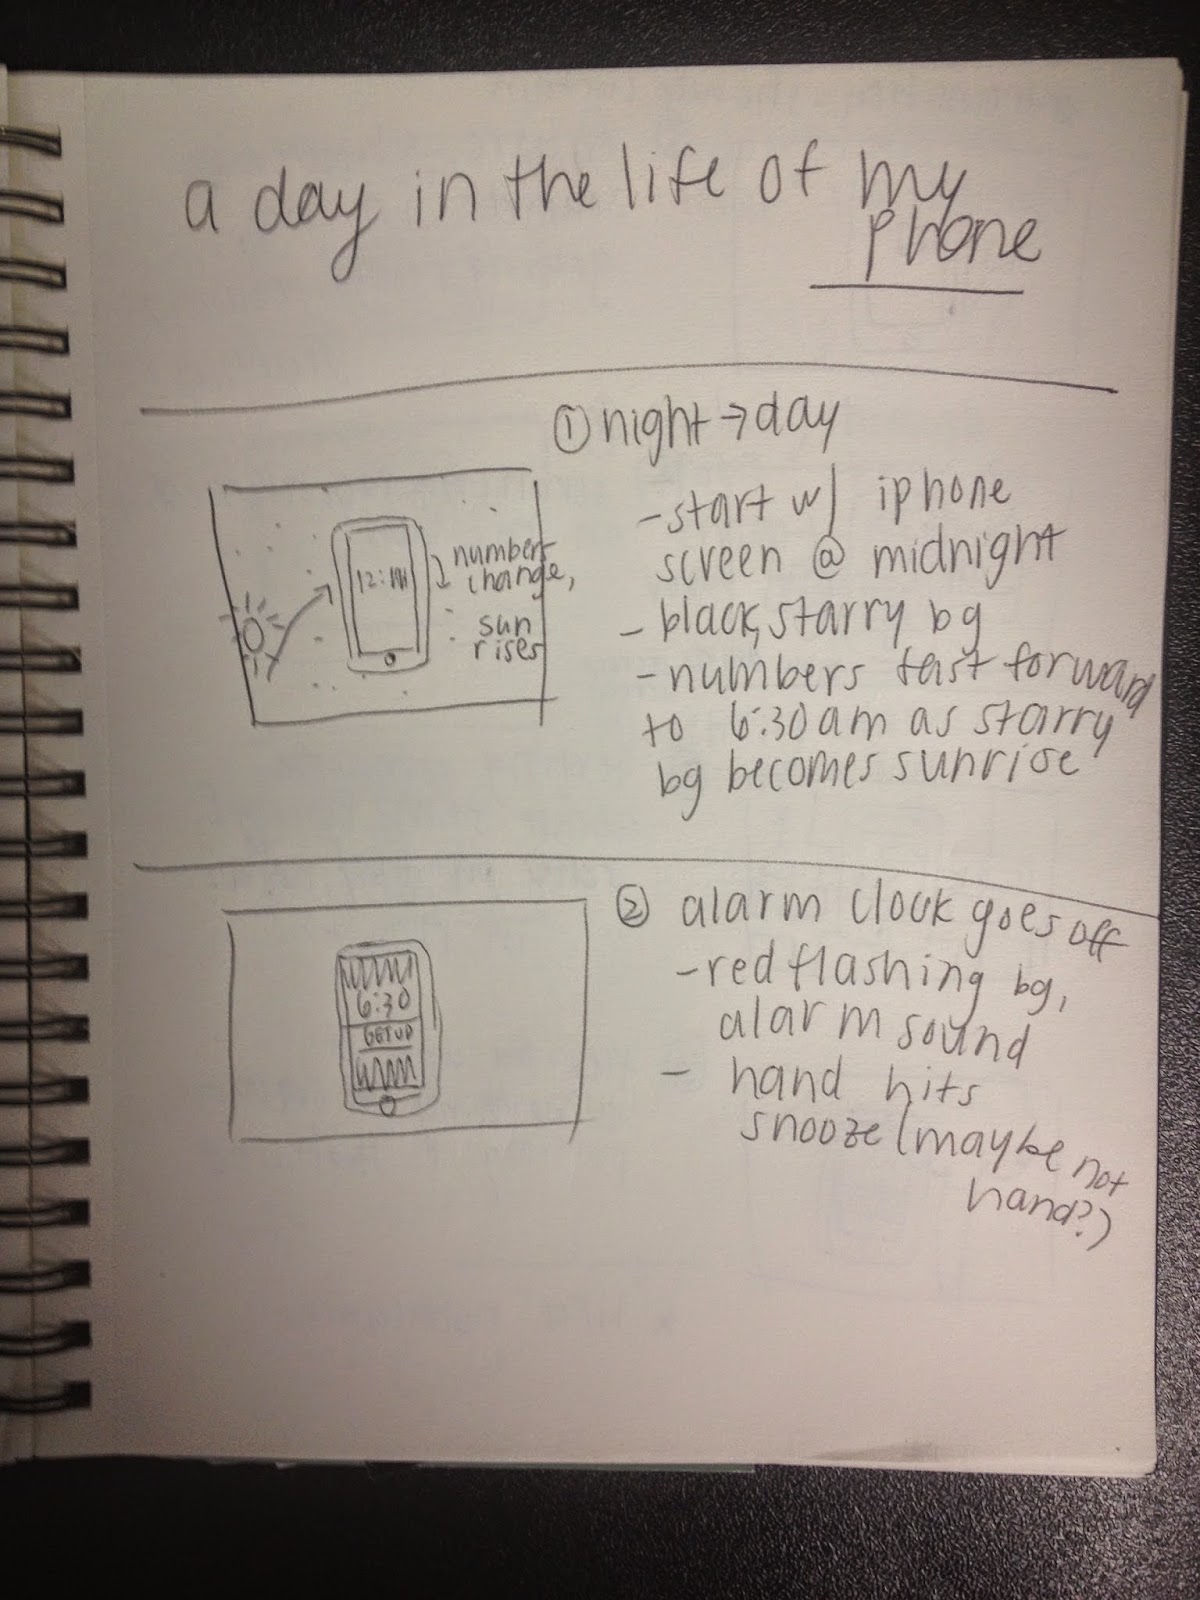 a day in the life of my
phone
① night → day
- start w/ iphone
screen @ midnight
- black, starry bg
- numbers fast forward
to 6:30 am as starry
bg becomes sunrise
numbers
change,
sun
rises
② alarm clock goes off
- red flashing bg,
alarm sound
- hand hits
snooze (maybe not
hand?)
6:30
GET UP